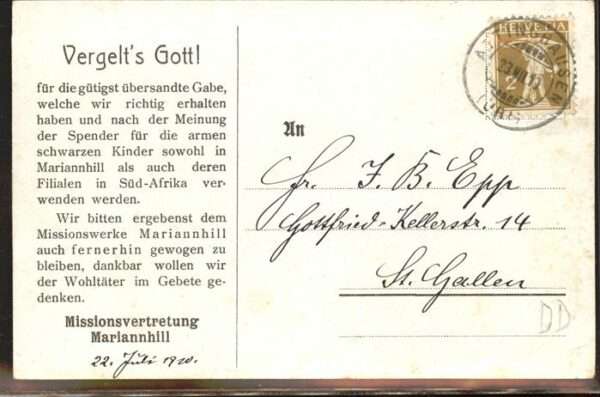 Vergelt's Gott!
für die gütigst übersandte Gabe,
welche wir richtig erhalten
haben und nach der Meinung
der Spender für die armen
schwarzen Kinder sowohl in
Mariannhill als auch deren
Filialen in Süd-Afrika ver-
wenden werden.
Wir bitten ergebenst dem
Missionswerke Mariannhill
auch fernerhin gewogen zu
bleiben, dankbar wollen wir
der Wohltäter im Gebete ge-
denken.
Missionsvertretung
Mariannhill
22. Juli 1910.
HELVETIA
2
(URI)
An
Hr. F. B. Epp
Gottfried-Kellerstr. 14
St. Gallen
DD